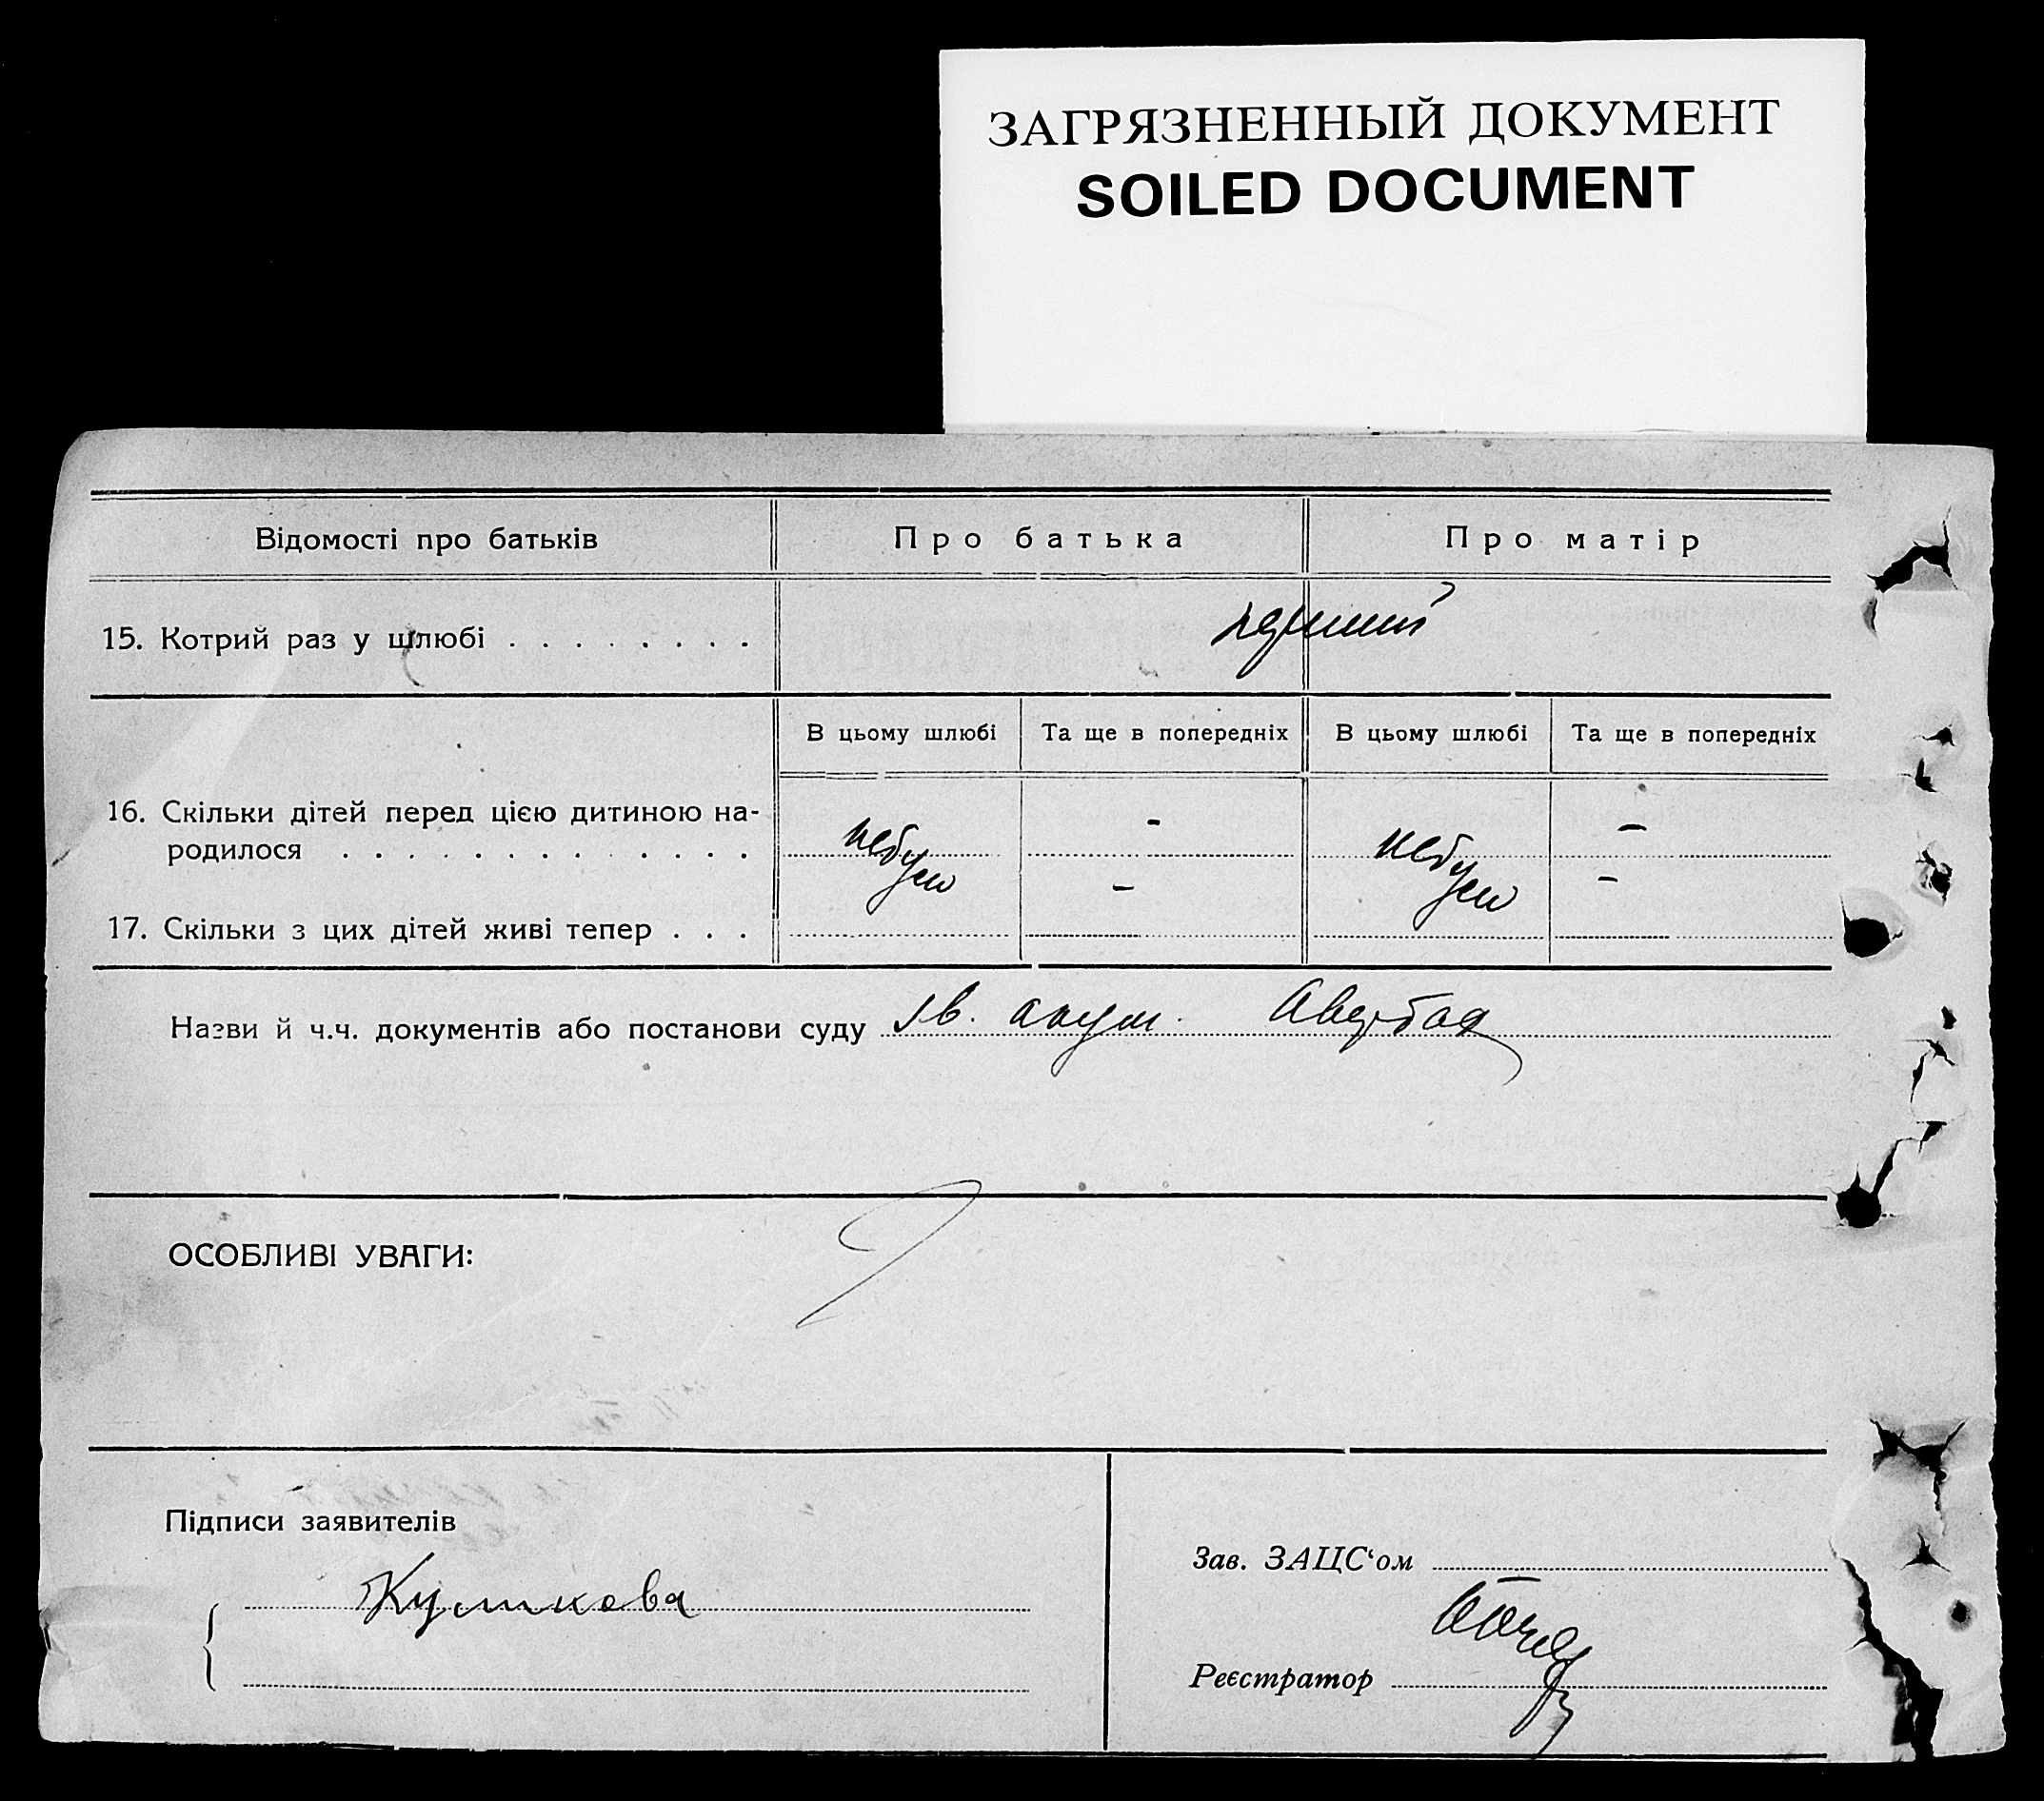 ЗАГРЯЗНЕННЫЙ ДОКУМЕНТ
SOILED DOCUMENT
Відомості про батьків Про батька Про матір
15. Котрий раз у шлюбі . . . . . . . .
В цьому шлюбі Та ще в попередніх В цьому шлюбі Та ще в попередніх
16. Скільки дітей перед цією дитиною на-
родилося . . . . . . . . . . . . . небуло - небуло -
17. Скільки з цих дітей живі тепер . . . - -
Назви й ч.ч. документів або постанови суду акуш.
ОСОБЛИВІ УВАГИ:
Підписи заявителів
Куликова
Зав. ЗАЦС‘ом
Реєстратор